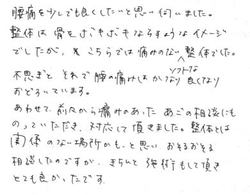 腰痛を少しでも良くしたいと思い伺いました。
整体は骨をぼきぼきならすようなイメージ
でしたが、こちらでは痛みのないソフトな整体でした。
不思ぎと それで腰の痛みはかなり良くなり
おどろいています。
あわせて前々から痛みのあった あごの相談にも
のっていただき、対応して頂きました。整体とは
関係のない場所かも、と思い おそるおそる
相談したのですが、きちんと施術もして頂き
とても良かったです。